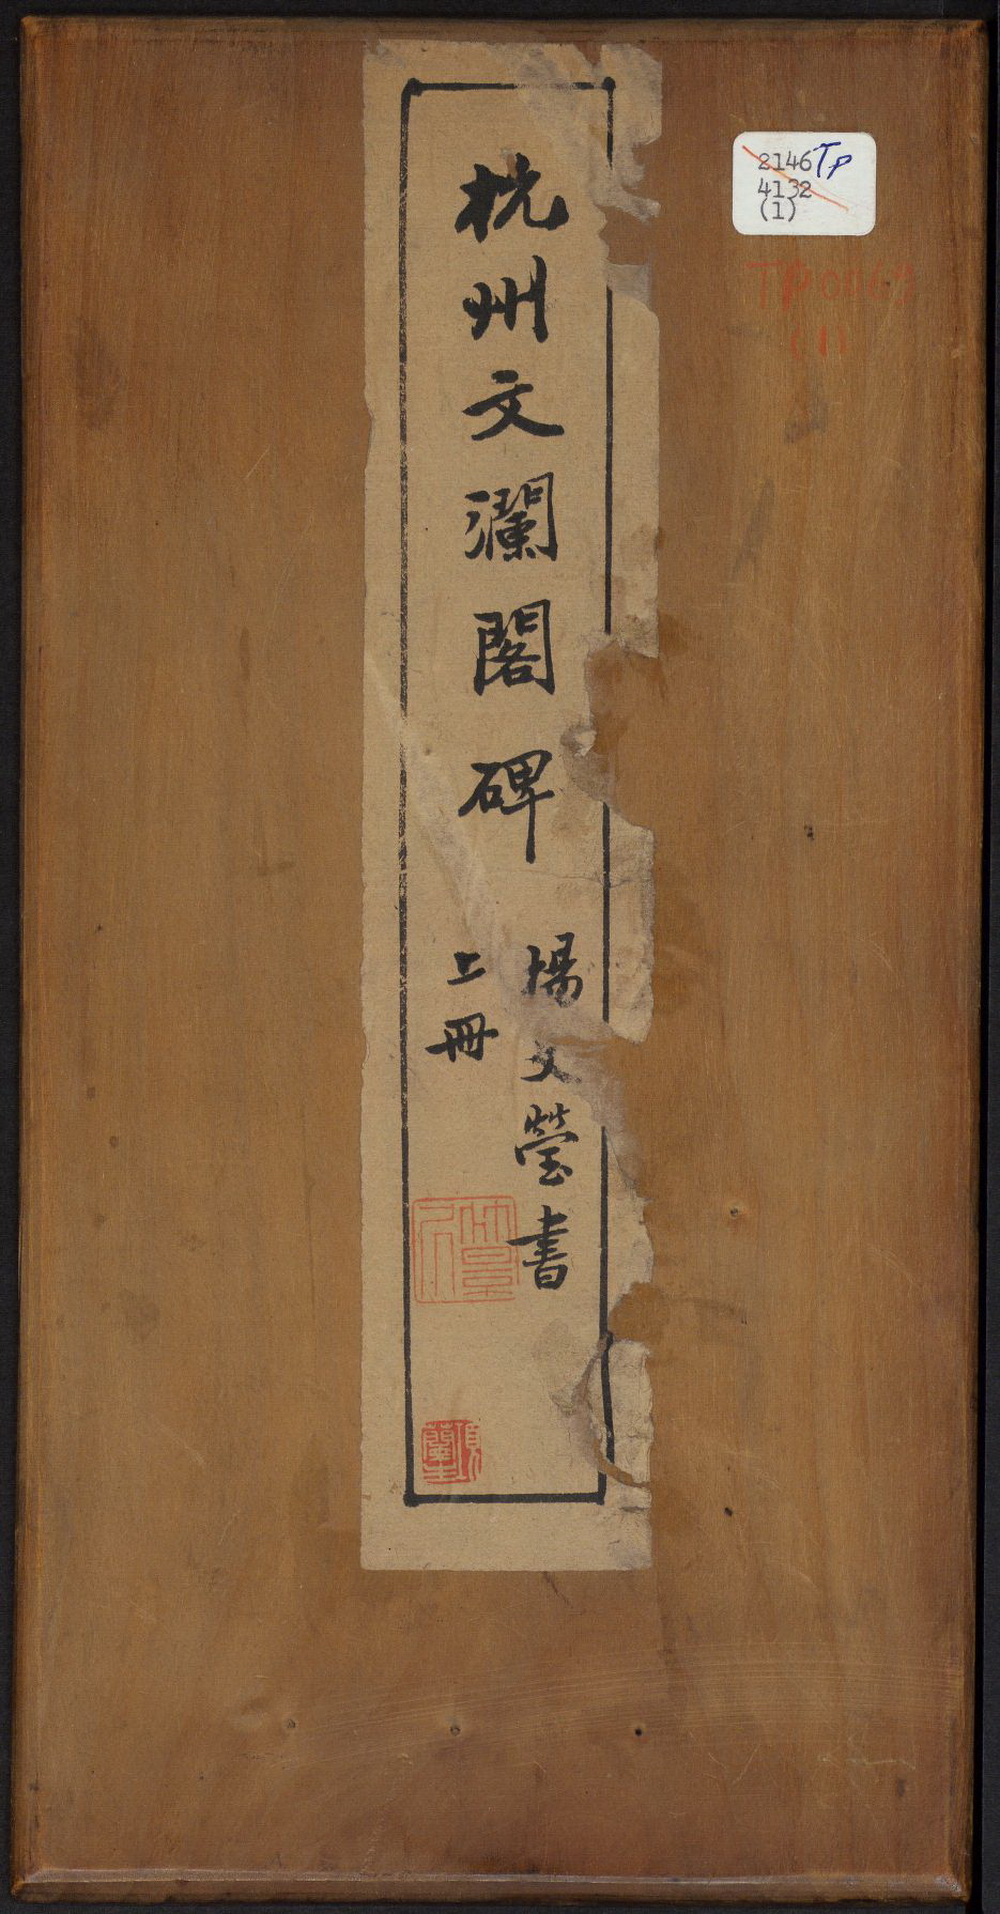 杭州文瀾閣碑
楊文瑩書
上冊
2146 TP
4132
(1)
(1)